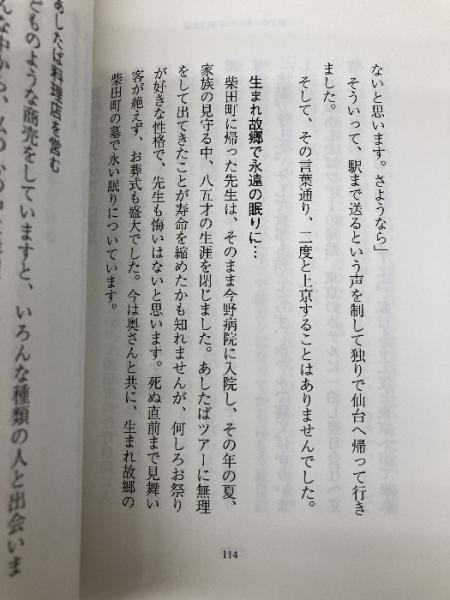 ないと思います。さようなら」
そういって、駅まで送るという声を制して独りで仙台へ帰って行き
ました。
そして、その言葉通り、二度と上京することはありませんでした。
生まれ故郷で永遠の眠りに…
柴田町に帰った先生は、そのまま今野病院に入院し、その年の夏、
家族の見守る中、八五才の生涯を閉じました。あしたばツアーに無理
をして出てきたことが寿命を縮めたかも知れませんが、何しろお祭り
が好きな性格で、先生も悔いはないと思います。死ぬ直前まで見舞い
客が絶えず、お葬式も盛大でした。今は奥さんと共に、生まれ故郷の
柴田町の墓で永い眠りについています。
114
あしたば料理店を営む
どものような商売をしていますと、いろんな種類の人と出会いま